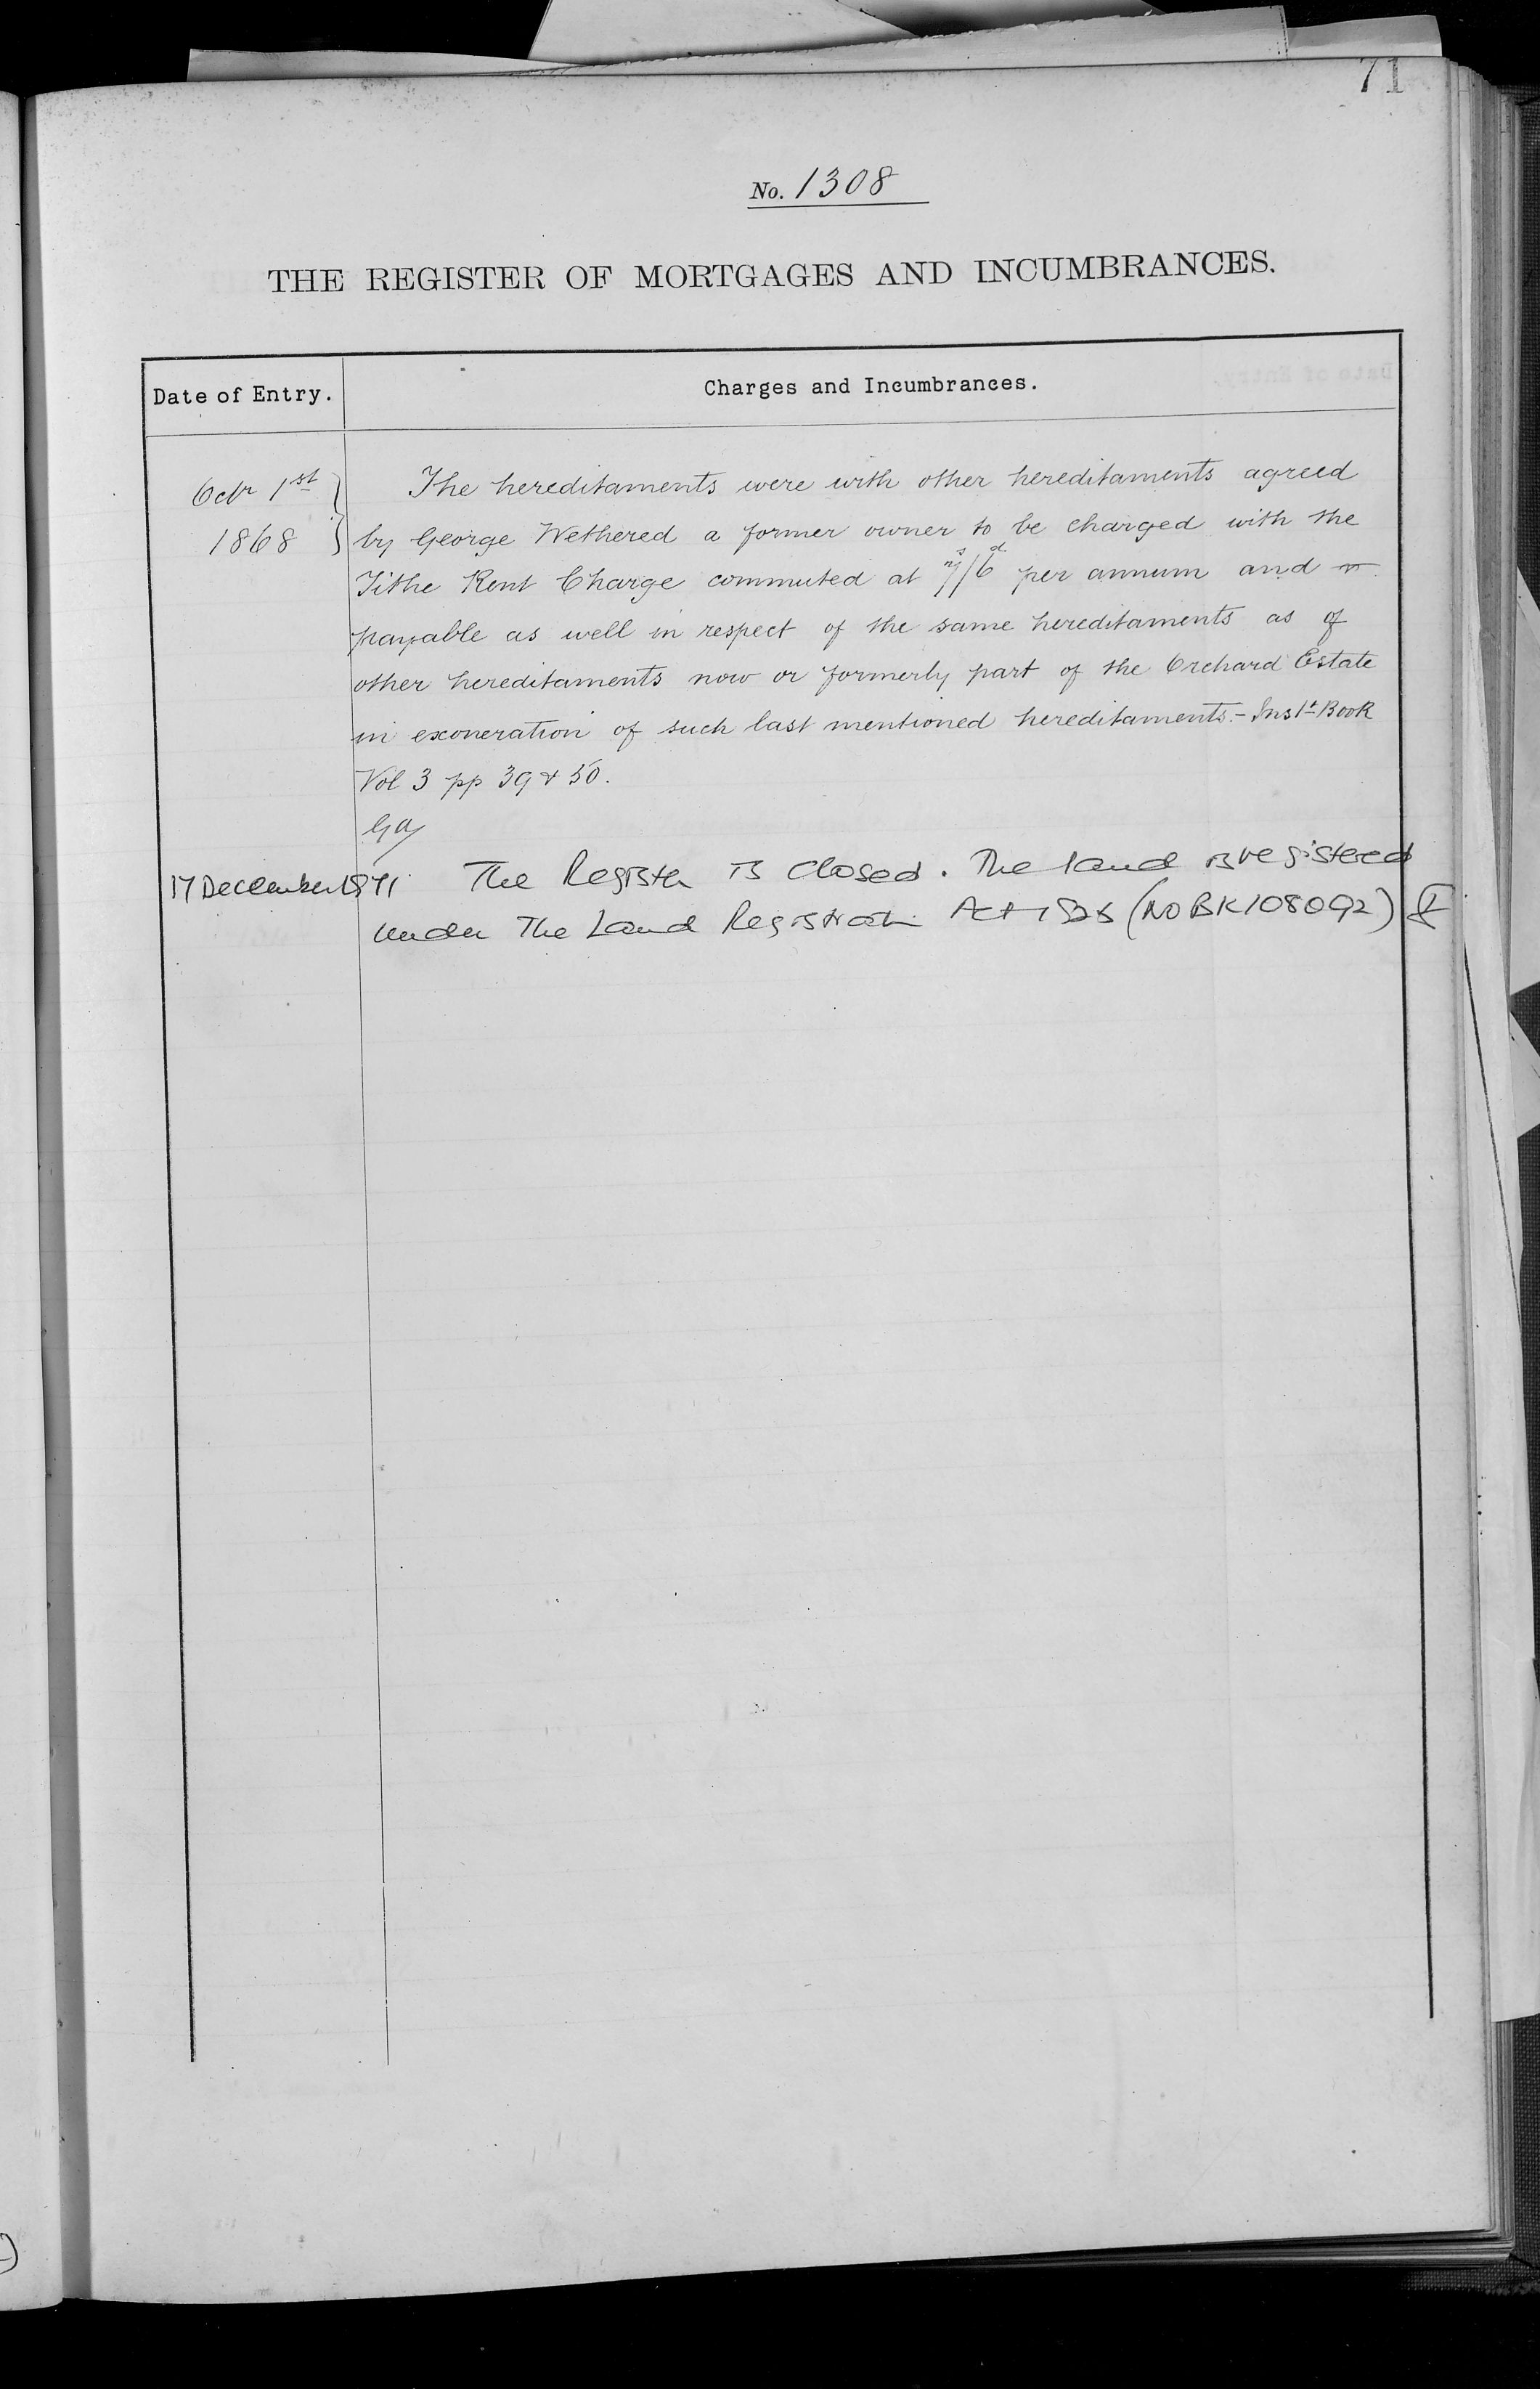 71
No. 1308
THE REGISTER OF MORTGAGES AND INCUMBRANCES.
Date of Entry.
Charges and Incumbrances.
Octr 1st
1868
The hereditaments were with other hereditaments agreed
by George Wethered a former owner to be charged with the
Tithe Rent Charge commuted at 7s/6d per annum and
payable as well in respect of the same hereditaments as of
other hereditaments now or formerly part of the Orchard Estate
in exoneration of such last mentioned hereditaments.- Inst Book
Vol 3 pp 39 & 50.
17 December 1971 The Register is closed. The land is registered
under The Land Registration Act 1925 (NO BK108092)